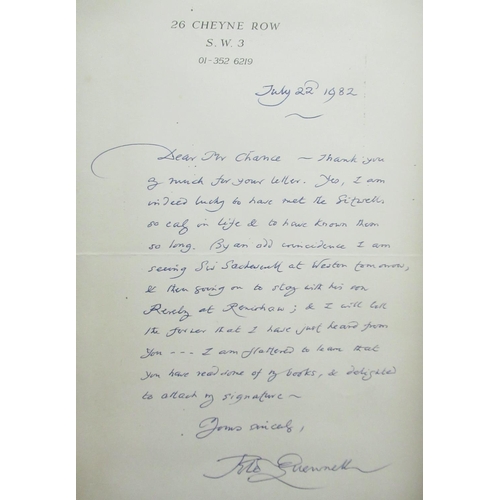 26 CHEYNE ROW
S. W. 3
01-352 6219
July 22nd 1982
Dear Mr Chance – Thank you
so much for your letter. Yes, I am
indeed lucky to have met the Sitwells
so early in life & to have known them
so long. By an odd coincidence I am
seeing Sir Sacheverell at Weston tomorrow,
& then going on to stay with his son
Reresby at Renishaw; & I will tell
the former that I have just heard from
you --- I am flattered to learn that
you have read some of my books, & delighted
to attach my signature –
Yours sincerely,
Quennell